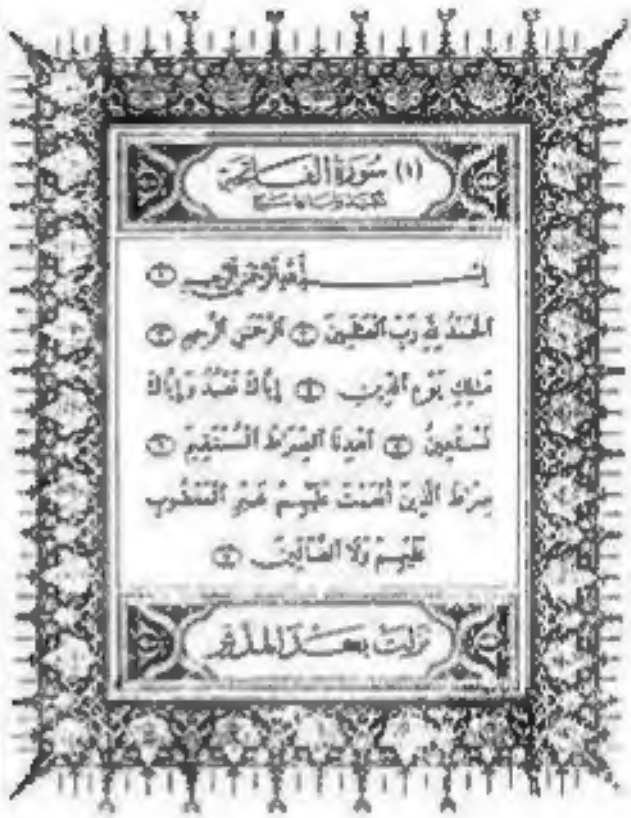 (١) سُورَةُ الْفَاتِحَةِ
مكية وآياتها سبع
بِسْمِ اللَّهِ الرَّحْمَٰنِ الرَّحِيمِ ١
الْحَمْدُ لِلَّهِ رَبِّ الْعَٰلَمِينَ ٢ الرَّحْمَٰنِ الرَّحِيمِ ٣
مَٰلِكِ يَوْمِ الدِّينِ ٤ إِيَّاكَ نَعْبُدُ وَإِيَّاكَ
نَسْتَعِينُ ٥ اهْدِنَا الصِّرَٰطَ الْمُسْتَقِيمَ ٦
صِرَٰطَ الَّذِينَ أَنْعَمْتَ عَلَيْهِمْ غَيْرِ الْمَغْضُوبِ
عَلَيْهِمْ وَلَا الضَّالِّينَ ٧
نزلت بعد المدثر